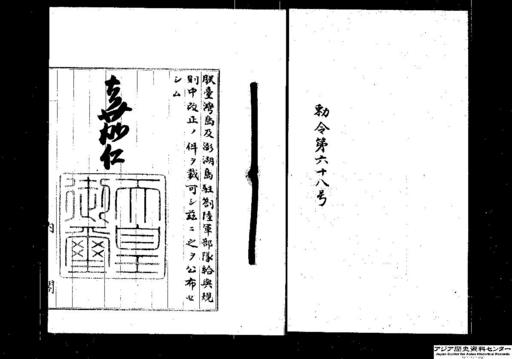 勅令第六十八号
朕臺灣島及澎湖島駐劄陸軍部隊給與規
則中改正ノ件ヲ裁可シ茲ニ之ヲ公布セ
シム
嘉仁
天皇御璽
内閣
アジア歴史資料センター
Japan Center for Asian Historical Records